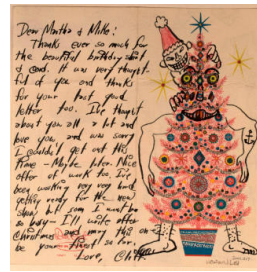 Dear Martha & Mike:
Thanks ever so much for
the beautiful birthday card
& good. It was very thought-
ful of you and thanks
for your last
letter too. I've thought
about you all a lot and
love you and was sorry
I couldn't get out this
time - Maybe later. Nice
offer of work too. I've
been working very very hard
getting ready for the new
show I am
so busy - I'll write after
Christmas and may this one
be your so far.
Love,